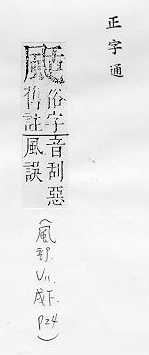 正字通
俗字音刮惡
風舊註風誤
(風部.
V11.
戌下.
P24
)